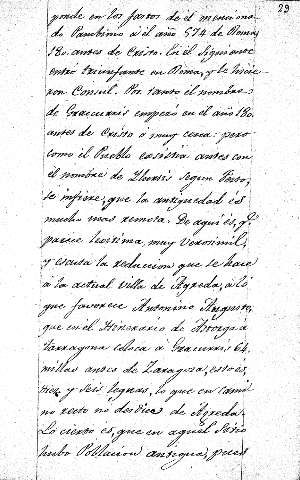 29
ponde en los fastos de el menciona-
do Panvinio a el año 574 de Roma,
180. antes de Cristo. En el siguiente
entro triunfante en Roma, y le hicie-
ron Consul. Por tanto el nombre
de Gracurris empezó en el año 180.
antes de Cristo ó muy cerca: pero
como el Pueblo existia antes con
el nombre de Ilurcis segun Festo,
se infiere, que la antiguedad es
mucho mas remota. De aqui es, q.e
parece lexitima, muy verosimil,
y la reduccion que se hace
a la actual Villa de Agreda, a lo
que favorece Antonino Augusto,
que en el Itinerario de Astorga a
Tarragona coloca a Gracurris 64.
millas antes de Zaragoza, esto es,
diez y seis leguas, lo que en cami-
no recto no desdice de Agreda.
Lo cierto es, que en aquel Sitio
hubo Poblacion antigua, pues